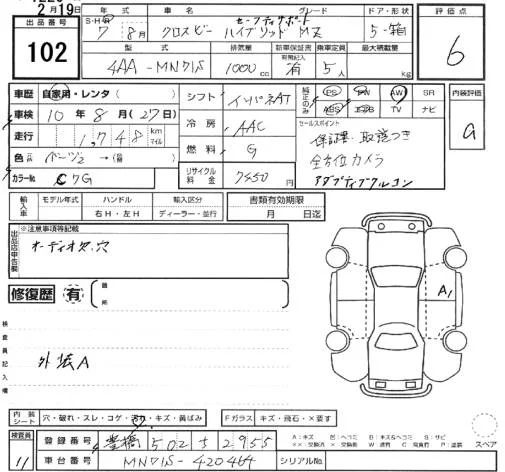 2月19日
出品番号
102
年式 車名 グレード ドア・形状 評価点
7年 8月 クロスビー ハイブリッドMZ 5-箱
セーフティサポート
6
型式 排気量 新車保証書 乗車定員 最大積載量
有無記入
4AA-MN71S 1000cc 有 5人 kg
車歴 自家用・レンタ
シフト インパネAT
純正のみ PS PW AW SR
ABS エアB TV ナビ
内装評価
a
車検 10年8月(27日)
走行 1,748 km マイル
冷房 AAC
セールスポイント
保証書・取説つき
全方位カメラ
アダプティブクルコン
燃料 G
カラーNo. C7G
リサイクル料金 7450円
輸入車 モデル年式 ハンドル 輸入区分 書類有効期限
右H・左H ディーラー・並行 月 日迄
出品店申告欄
※注意事項等記載
オーディオ欠、穴
修復歴 有 箇所
A1
検査員記入欄
外装A
内装シート 穴・破れ・スレ・コゲ・汚れ・キズ・黄ばみ
Fガラス キズ・飛石・×要す
検査員
11
登録番号 豊橋 502 す 2955
車台番号 MN71S-420464
シリアルNo.
A:キズ B:ヘコミ W:波打 S:サビ
××:交換済 ×:要交換 P:塗装
スペア